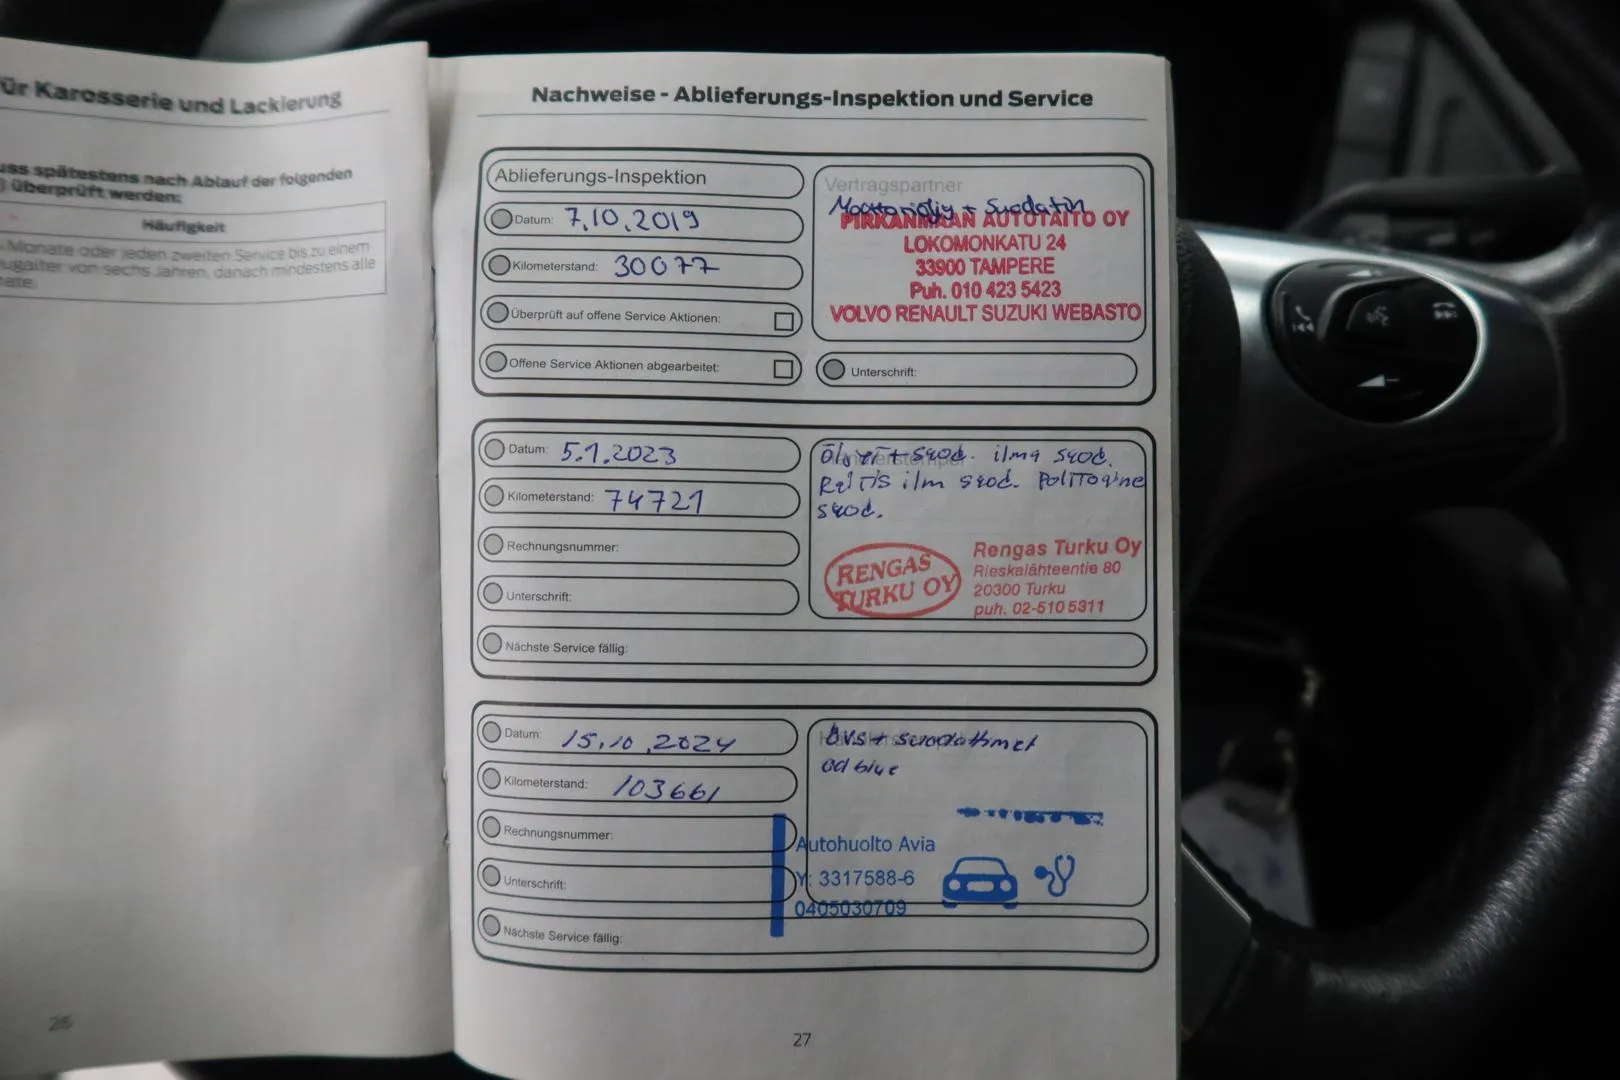 ür Karosserie und Lackierung
uss spätestens nach Ablauf der folgenden
) überprüft werden:
Häufigkeit
Monate oder jeden zweiten Service bis zu einem
ugalter von sechs Jahren, danach mindestens alle
nate.
26
Nachweise - Ablieferungs-Inspektion und Service
Ablieferungs-Inspektion
Datum: 7.10.2019
Kilometerstand: 30077
Überprüft auf offene Service Aktionen:
Offene Service Aktionen abgearbeitet:
Vertragspartner
Moottoriöljy + Suodatin
PIRKANMAAN AUTOTAITO OY
LOKOMONKATU 24
33900 TAMPERE
Puh. 010 423 5423
VOLVO RENAULT SUZUKI WEBASTO
Unterschrift:
Datum: 5.1.2023
Kilometerstand: 74721
Rechnungsnummer:
Unterschrift:
Nächste Service fällig:
+ suod. ilma suod.
ilm suod. Polttoaine
suod.
RENGAS
TURKU OY
Rengas Turku Oy
Rieskalähteentie 80
20300 Turku
puh. 02-510 5311
Datum: 15.10.2024
Kilometerstand: 103661
Rechnungsnummer:
Unterschrift:
Nächste Service fällig:
övs + suodattimet
ad blue
Autohuolto Avia
Y: 3317588-6
0405030709
27